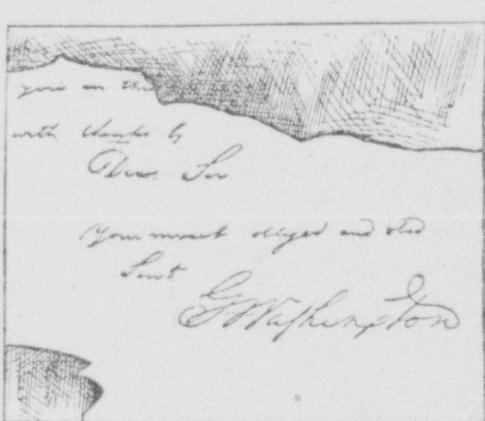 you on the
with thanks by
Dear Sir
Your most obliged and obed
Servt
GWashington